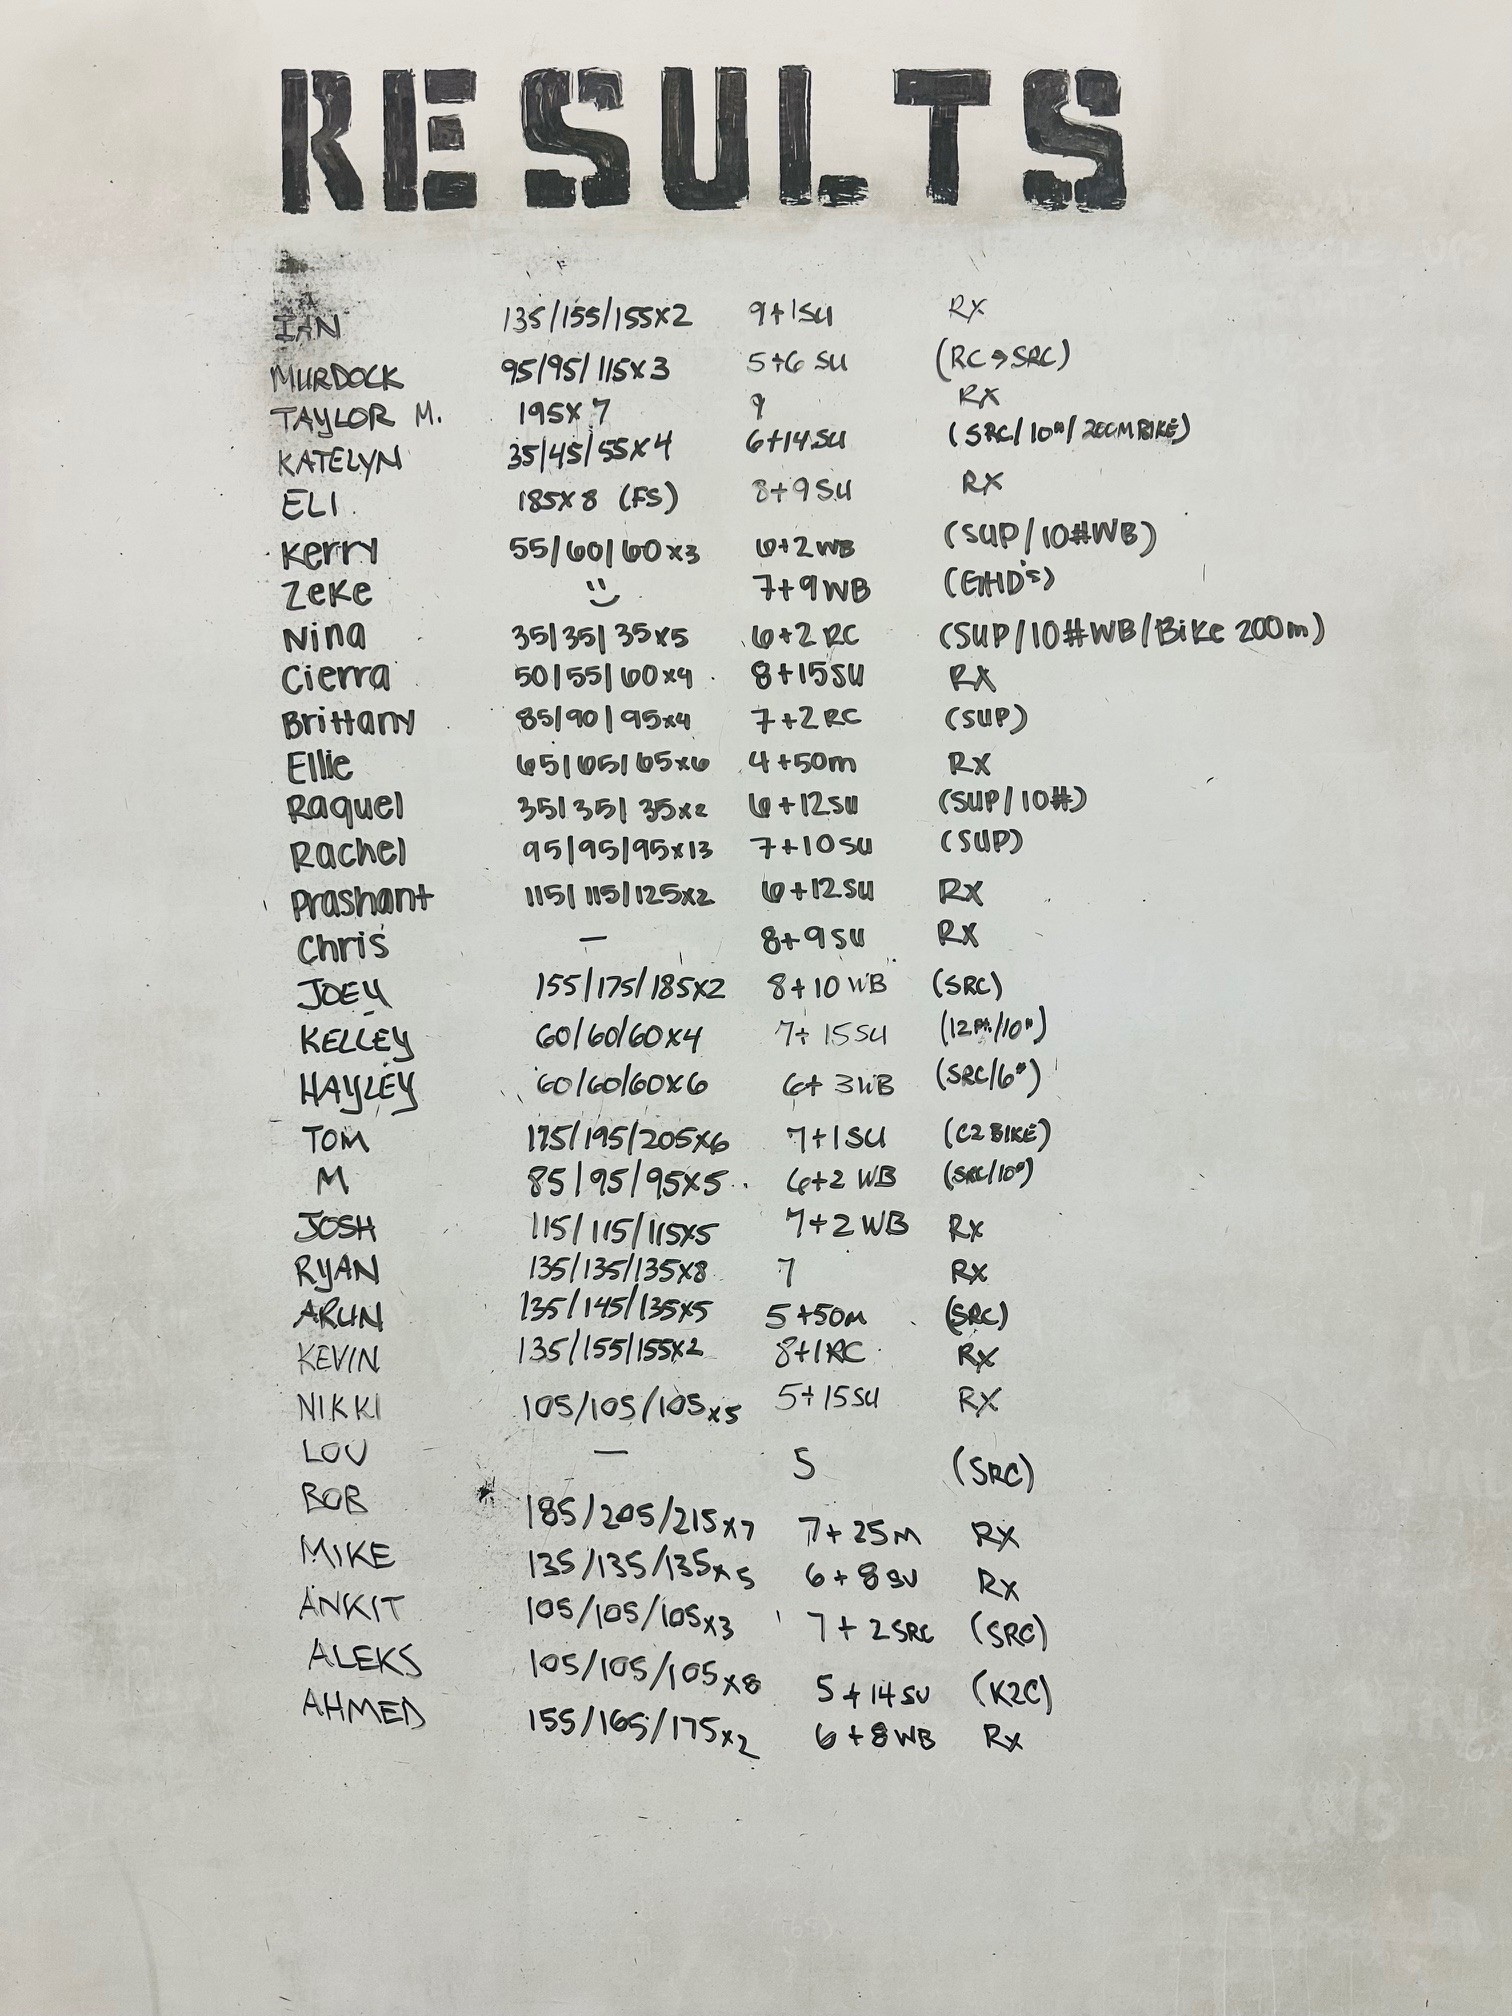 RESULTS
IAN 135/155/155x2 9+1SU RX
MURDOCK 95/95/115x3 5+6 SU (RC→SRC)
TAYLOR M. 195x7 9 RX
KATELYN 35/45/55x4 6+14SU (SRC/10#/200M BIKE)
ELI 185x8 (FS) 8+9SU RX
Kerry 55/60/60x3 6+2WB (SUP/10#WB)
Zeke 7+9WB (GHD's)
Nina 35/35/35x5 6+2 RC (SUP/10#WB/Bike 200m)
Cierra 50/55/60x9 8+15SU RX
Brittany 85/90/95x4 7+2RC (SUP)
Ellie 65/65/65x6 4+50m RX
Raquel 35/35/35x2 6+12SU (SUP/10#)
Rachel 95/95/95x13 7+10SU (SUP)
Prashant 115/115/125x2 6+12SU RX
Chris — 8+9SU RX
JOEY 155/175/185x2 8+10 WB (SRC)
KELLEY 60/60/60x4 7+ 15SU (12Pt./10#)
HAYLEY 60/60/60x6 6+ 3WB (SRC/6#)
TOM 175/195/205x6 7+1SU (C2 BIKE)
M 85/95/95x5 6+2 WB (SRC/10#)
JOSH 115/115/115x5 7+2 WB Rx
RYAN 135/135/135x8 7 Rx
ARUN 135/145/135x5 5+50M (SRC)
KEVIN 135/155/155x2 8+1RC Rx
NIKKI 105/105/105x5 5+15SU RX
LOU — 5 (SRC)
BOB 185/205/215x7 7+25M RX
MIKE 135/135/135x5 6+8SU Rx
ANKIT 105/105/105x3 7+2SRC (SRC)
ALEKS 105/105/105x8 5+14SU (K2C)
AHMED 155/165/175x2 6+8WB Rx